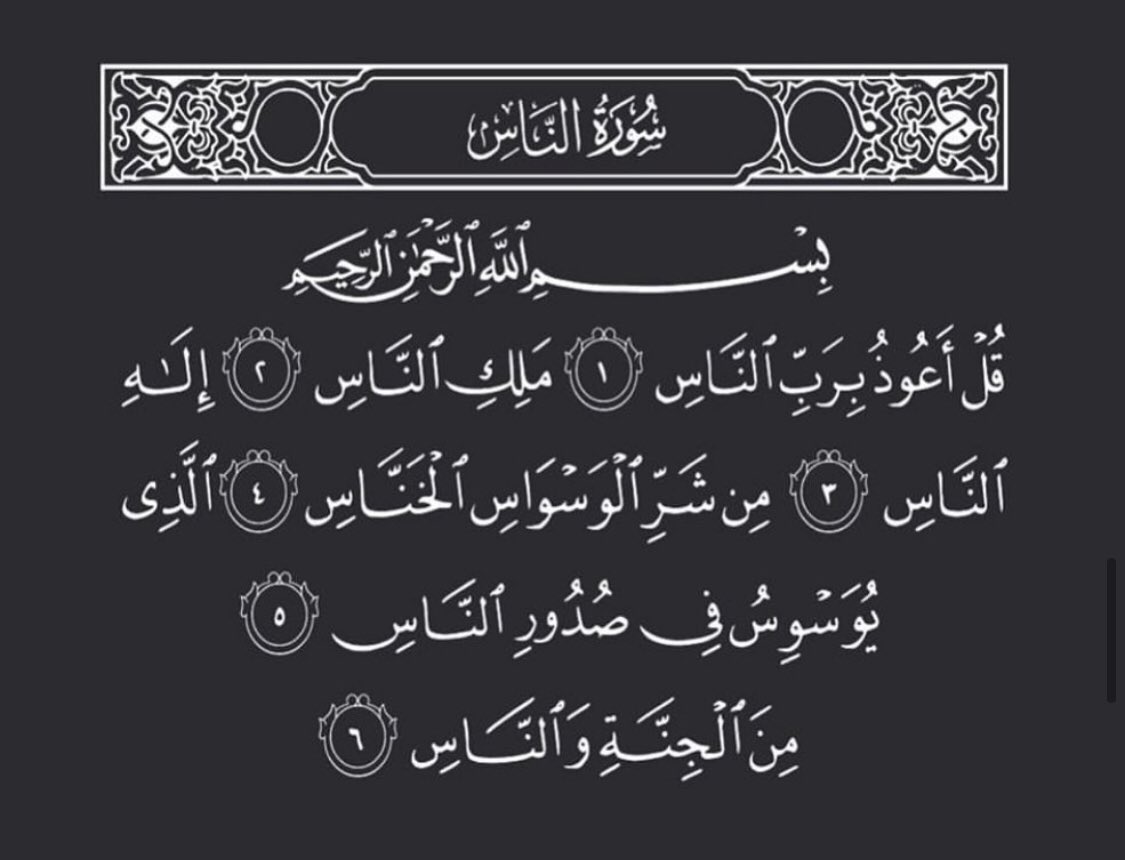 سُورَةُ النَّاسِ
بِسْمِ ٱللَّهِ ٱلرَّحْمَٰنِ ٱلرَّحِيمِ
قُلْ أَعُوذُ بِرَبِّ ٱلنَّاسِ ١ مَلِكِ ٱلنَّاسِ ٢ إِلَـٰهِ
ٱلنَّاسِ ٣ مِن شَرِّ ٱلْوَسْوَاسِ ٱلْخَنَّاسِ ٤ ٱلَّذِى
يُوَسْوِسُ فِى صُدُورِ ٱلنَّاسِ ٥
مِنَ ٱلْجِنَّةِ وَٱلنَّاسِ ٦